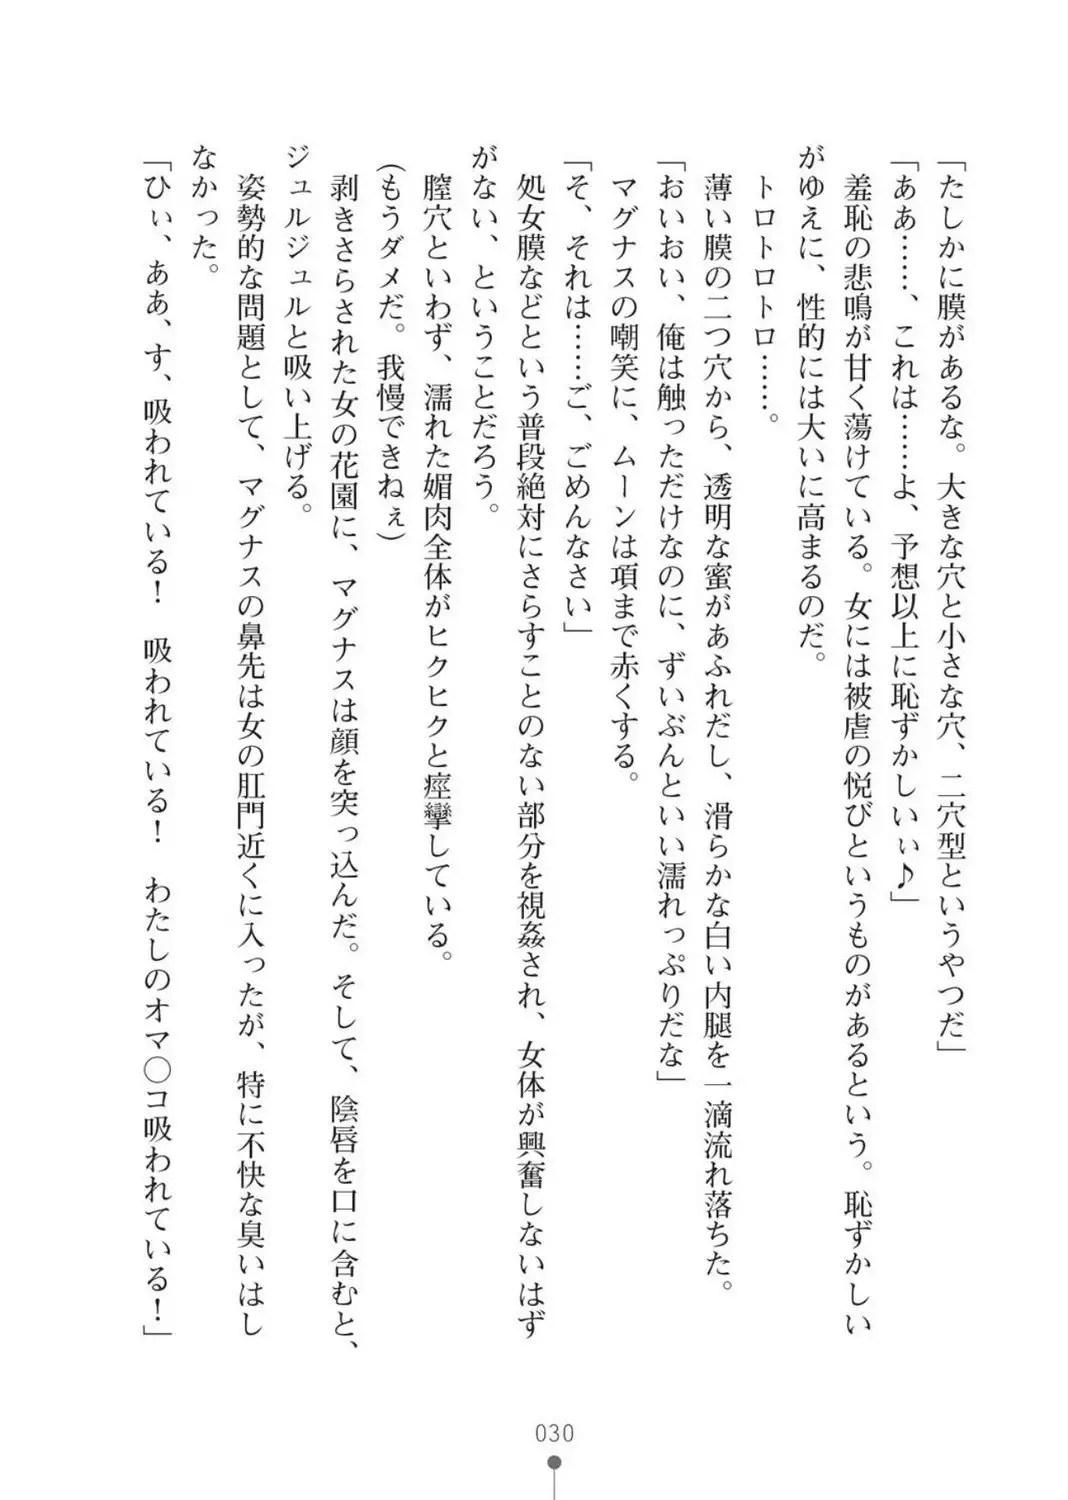 「たしかに膜があるな。大きな穴と小さな穴、二穴型というやつだ」
「ああ……、これは……よ、予想以上に恥ずかしいぃ♪」
羞恥の悲鳴が甘く蕩けている。女には被虐の悦びというものがあるという。恥ずかしい
がゆえに、性的には大いに高まるのだ。
トロトロトロ……。
薄い膜の二つ穴から、透明な蜜があふれだし、滑らかな白い内腿を一滴流れ落ちた。
「おいおい、俺は触っただけなのに、ずいぶんといい濡れっぷりだな」
マグナスの嘲笑に、ムーンは項まで赤くする。
「そ、それは……ご、ごめんなさい」
処女膜などという普段絶対にさらすことのない部分を視姦され、女体が興奮しないはず
がない、ということだろう。
膣穴といわず、濡れた媚肉全体がヒクヒクと痙攣している。
(もうダメだ。我慢できねぇ)
剥きさらされた女の花園に、マグナスは顔を突っ込んだ。そして、陰唇を口に含むと、
ジュルジュルと吸い上げる。
姿勢的な問題として、マグナスの鼻先は女の肛門近くに入ったが、特に不快な臭いはし
なかった。
「ひぃ、ああ、す、吸われている！　吸われている！　わたしのオマ〇コ吸われている！」
030